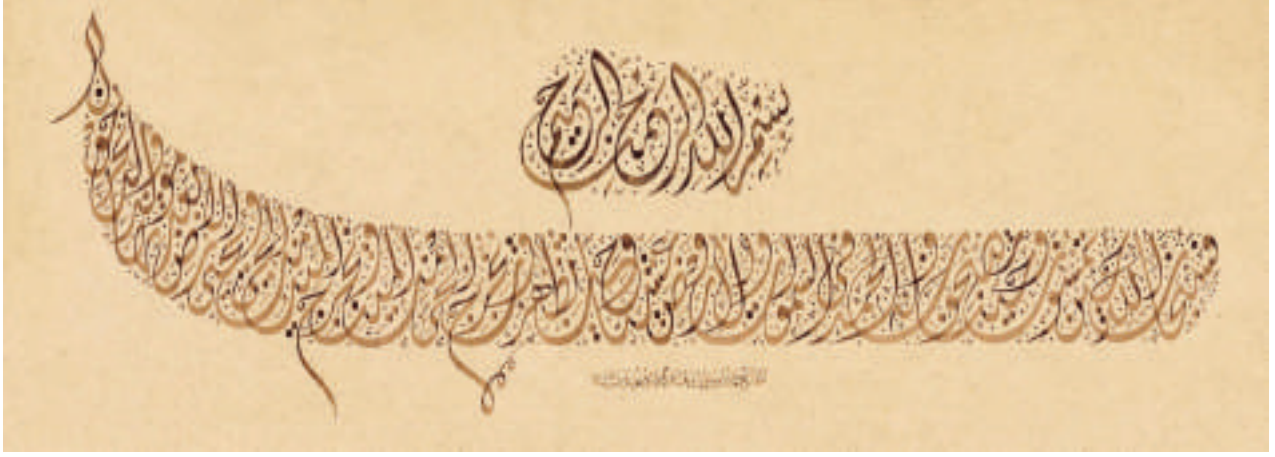 بسم الله الرحمن الرحيم
فسبحان الله حين تمسون وحين تصبحون وله الحمد في السموات والأرض وعشيا وحين تظهرون يخرج الحي من الميت ويخرج الميت من الحي ويحيي الأرض بعد موتها وكذلك تخرجون